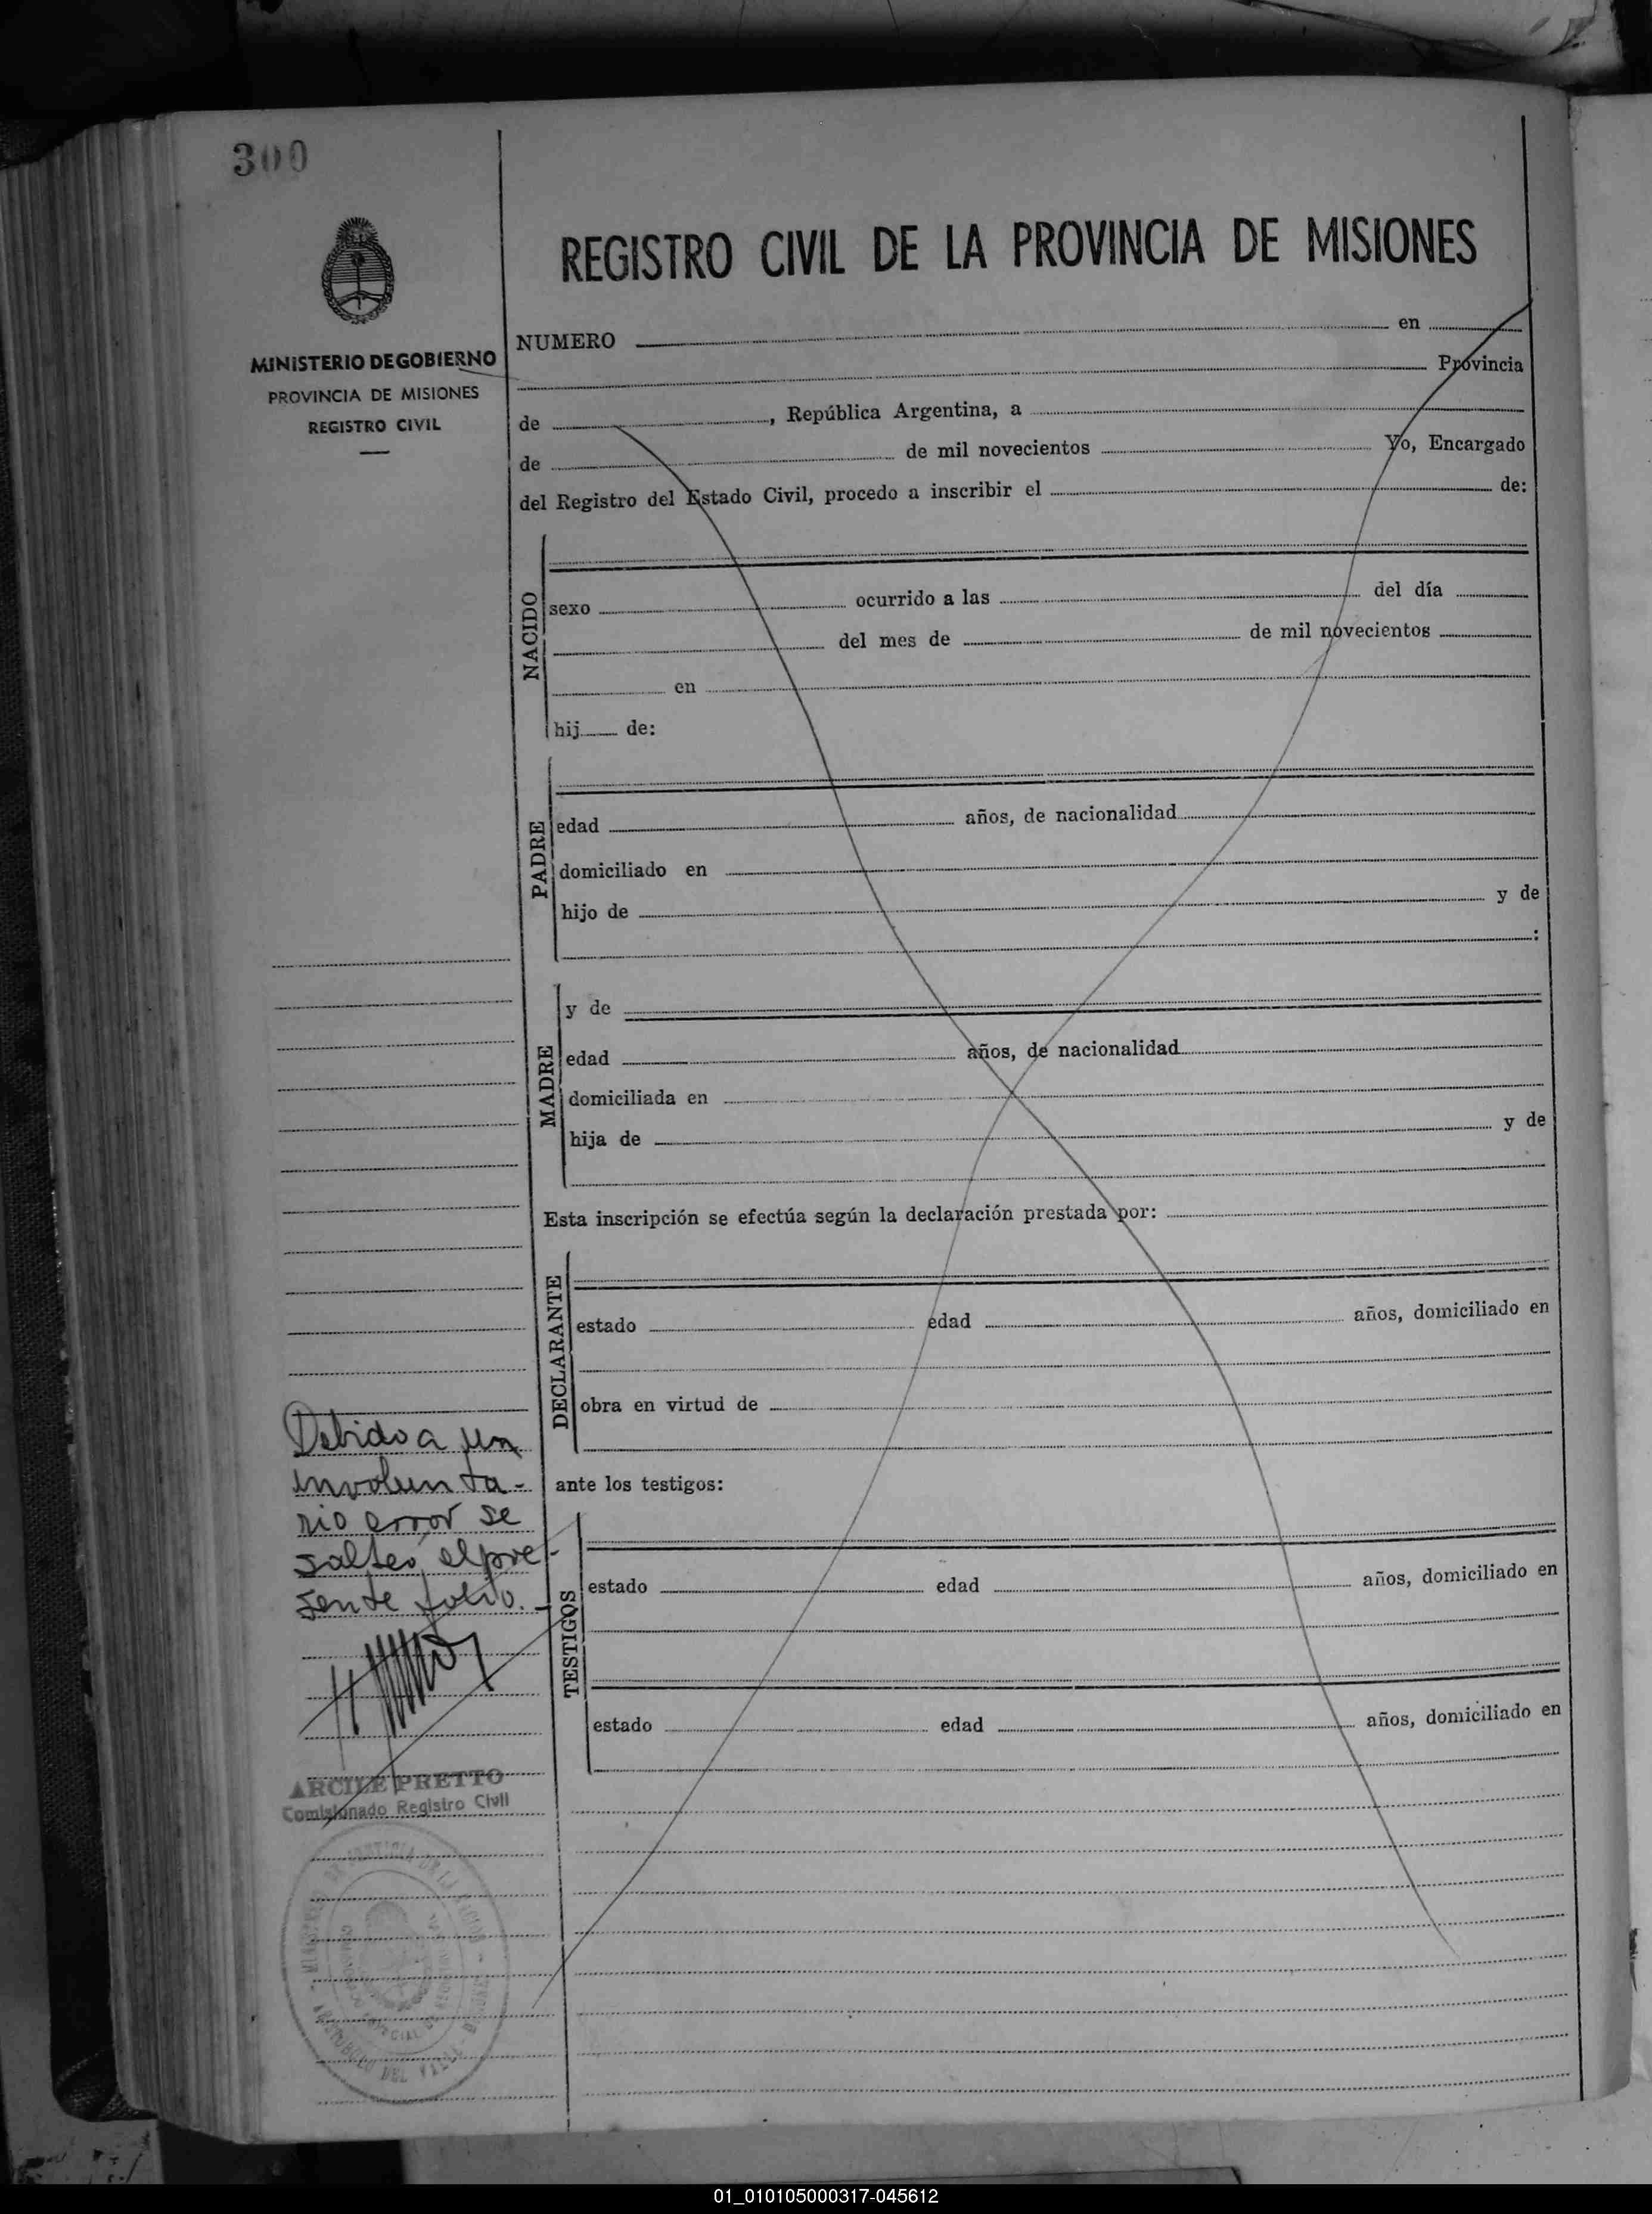 300
MINISTERIO DE GOBIERNO
PROVINCIA DE MISIONES
REGISTRO CIVIL
REGISTRO CIVIL DE LA PROVINCIA DE MISIONES
NUMERO en
Provincia
de , República Argentina, a
de de mil novecientos Yo, Encargado
del Registro del Estado Civil, procedo a inscribir el de:
NACIDO
sexo ocurrido a las del día
del mes de de mil novecientos
en
hij de:
PADRE
edad años, de nacionalidad
domiciliado en
hijo de y de
:
MADRE
y de
edad años, de nacionalidad
domiciliada en
hija de y de
Esta inscripción se efectúa según la declaración prestada por:
DECLARANTE
estado edad años, domiciliado en
obra en virtud de
ante los testigos:
TESTIGOS
estado edad años, domiciliado en
estado edad años, domiciliado en
Debido a un
involunta-
rio error se
salteó el pre-
sente folio.-
ARCILE PRETTO
Comisionado Registro Civil
ARISTOBULO DEL VALLE
01_010105000317-045612